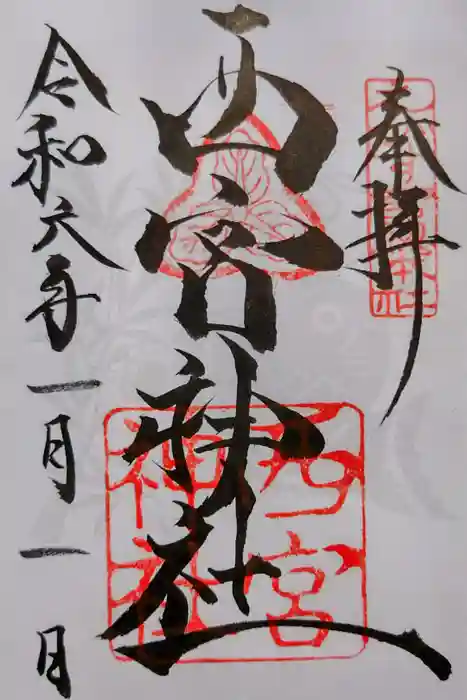 奉拝
西宮神社
西宮
神社
令和六年一月一日